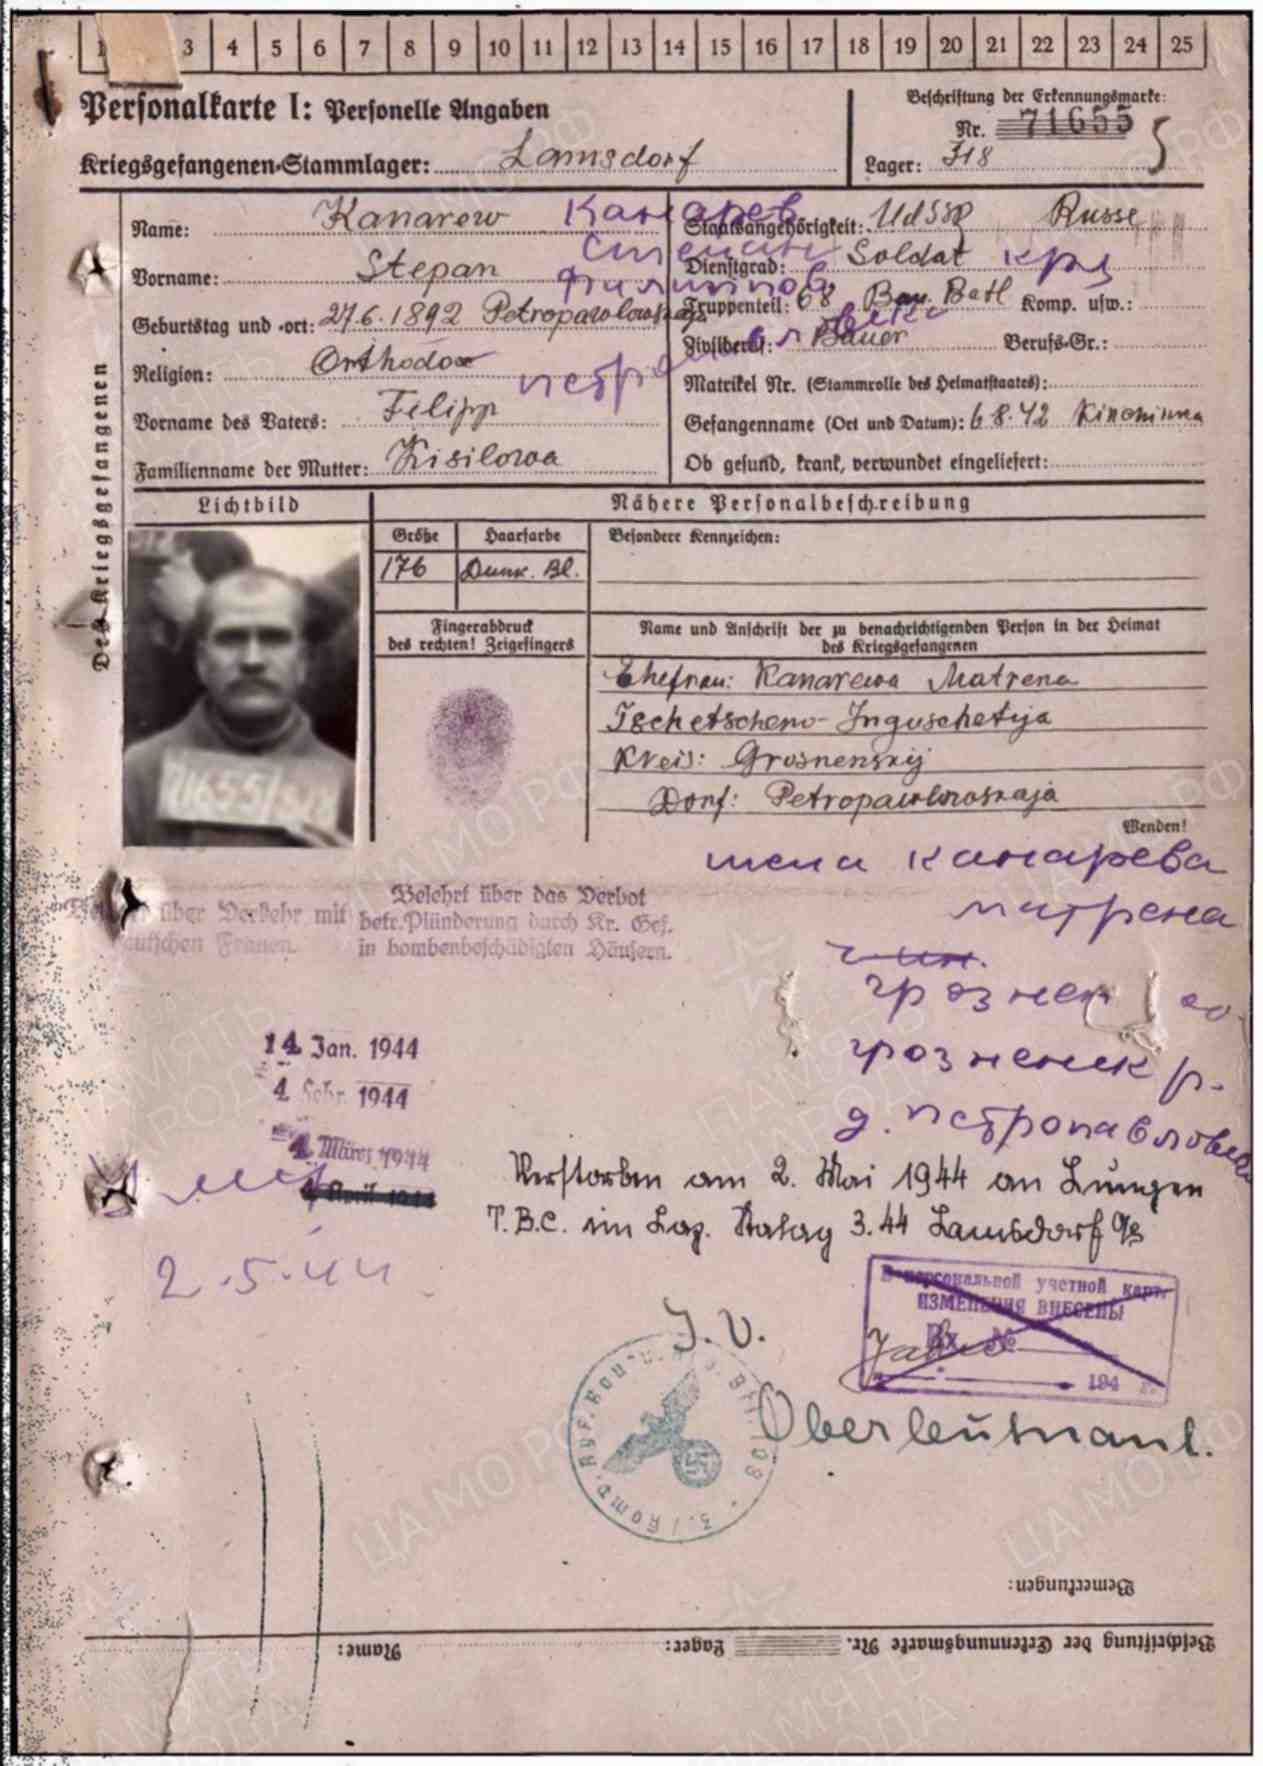 3 4 5 6 7 8 9 10 11 12 13 14 15 16 17 18 19 20 21 22 23 24 25
Personalkarte I: Personelle Angaben
Kriegsgefangenen-Stammlager: Lamsdorf
Beschriftung der Erkennungsmarke:
Nr. 71655
Lager: 318
Des Kriegsgefangenen
Name: Kanarew
Vorname: Stepan
Geburtstag und -ort: 27.6.1892 Petropawlowskaja
Religion: Orthodox
Vorname des Vaters: Filipp
Familienname der Mutter: Kisilowa
Канарев
Степан
Филиппов
петропавловск
Staatsangehörigkeit: UdSSR Russe
Dienstgrad: Soldat кр
Truppenteil: 68 Bau. Batl Komp. usw.:
Zivilberuf: Bauer Berufs-Gr.:
Matrikel Nr. (Stammrolle des Heimatstaates):
Gefangenname (Ort und Datum): 6 8.42
Ob gesund, krank, verwundet eingeliefert:
Lichtbild
Nähere Personalbeschreibung
Größe Haarfarbe Besondere Kennzeichen:
176 Dunk. Bl.
Fingerabdruck
des rechten! Zeigefingers
Name und Anschrift der zu benachrichtigenden Person in der Heimat
des Kriegsgefangenen
Ehefrau: Kanarewa Matrena
Tschetscheno-Inguschetija
Kreis: Grosnenskij
Dorf: Petropawlowskaja
Wenden!
71655/318
жена Канарева
матрена
грознен об.
грозненск р.
д. петропавловск
über Verkehr mit
deutschen Frauen.
Belehrt über das Verbot
betr. Plünderung durch Kr. Gef.
in bombenbeschädigten Häusern.
14 Jan. 1944
4 Febr. 1944
4 März 1944
4 April 1944
2.5.44
Verstorben am 2. Mai 1944 an Lungen
T.B.C. im Laz. Stalag 344 Lamsdorf O/S
В персональной учетной карт.
ИЗМЕНЕНИЯ ВНЕСЕНЫ
Вх. №
194 г.
J. V.
Oberleutnant.
Bemerkungen:
Beschriftung der Erkennungsmarke Nr. Lager: Name:
ЦАМО РФ
ПАМЯТЬ НАРОДА